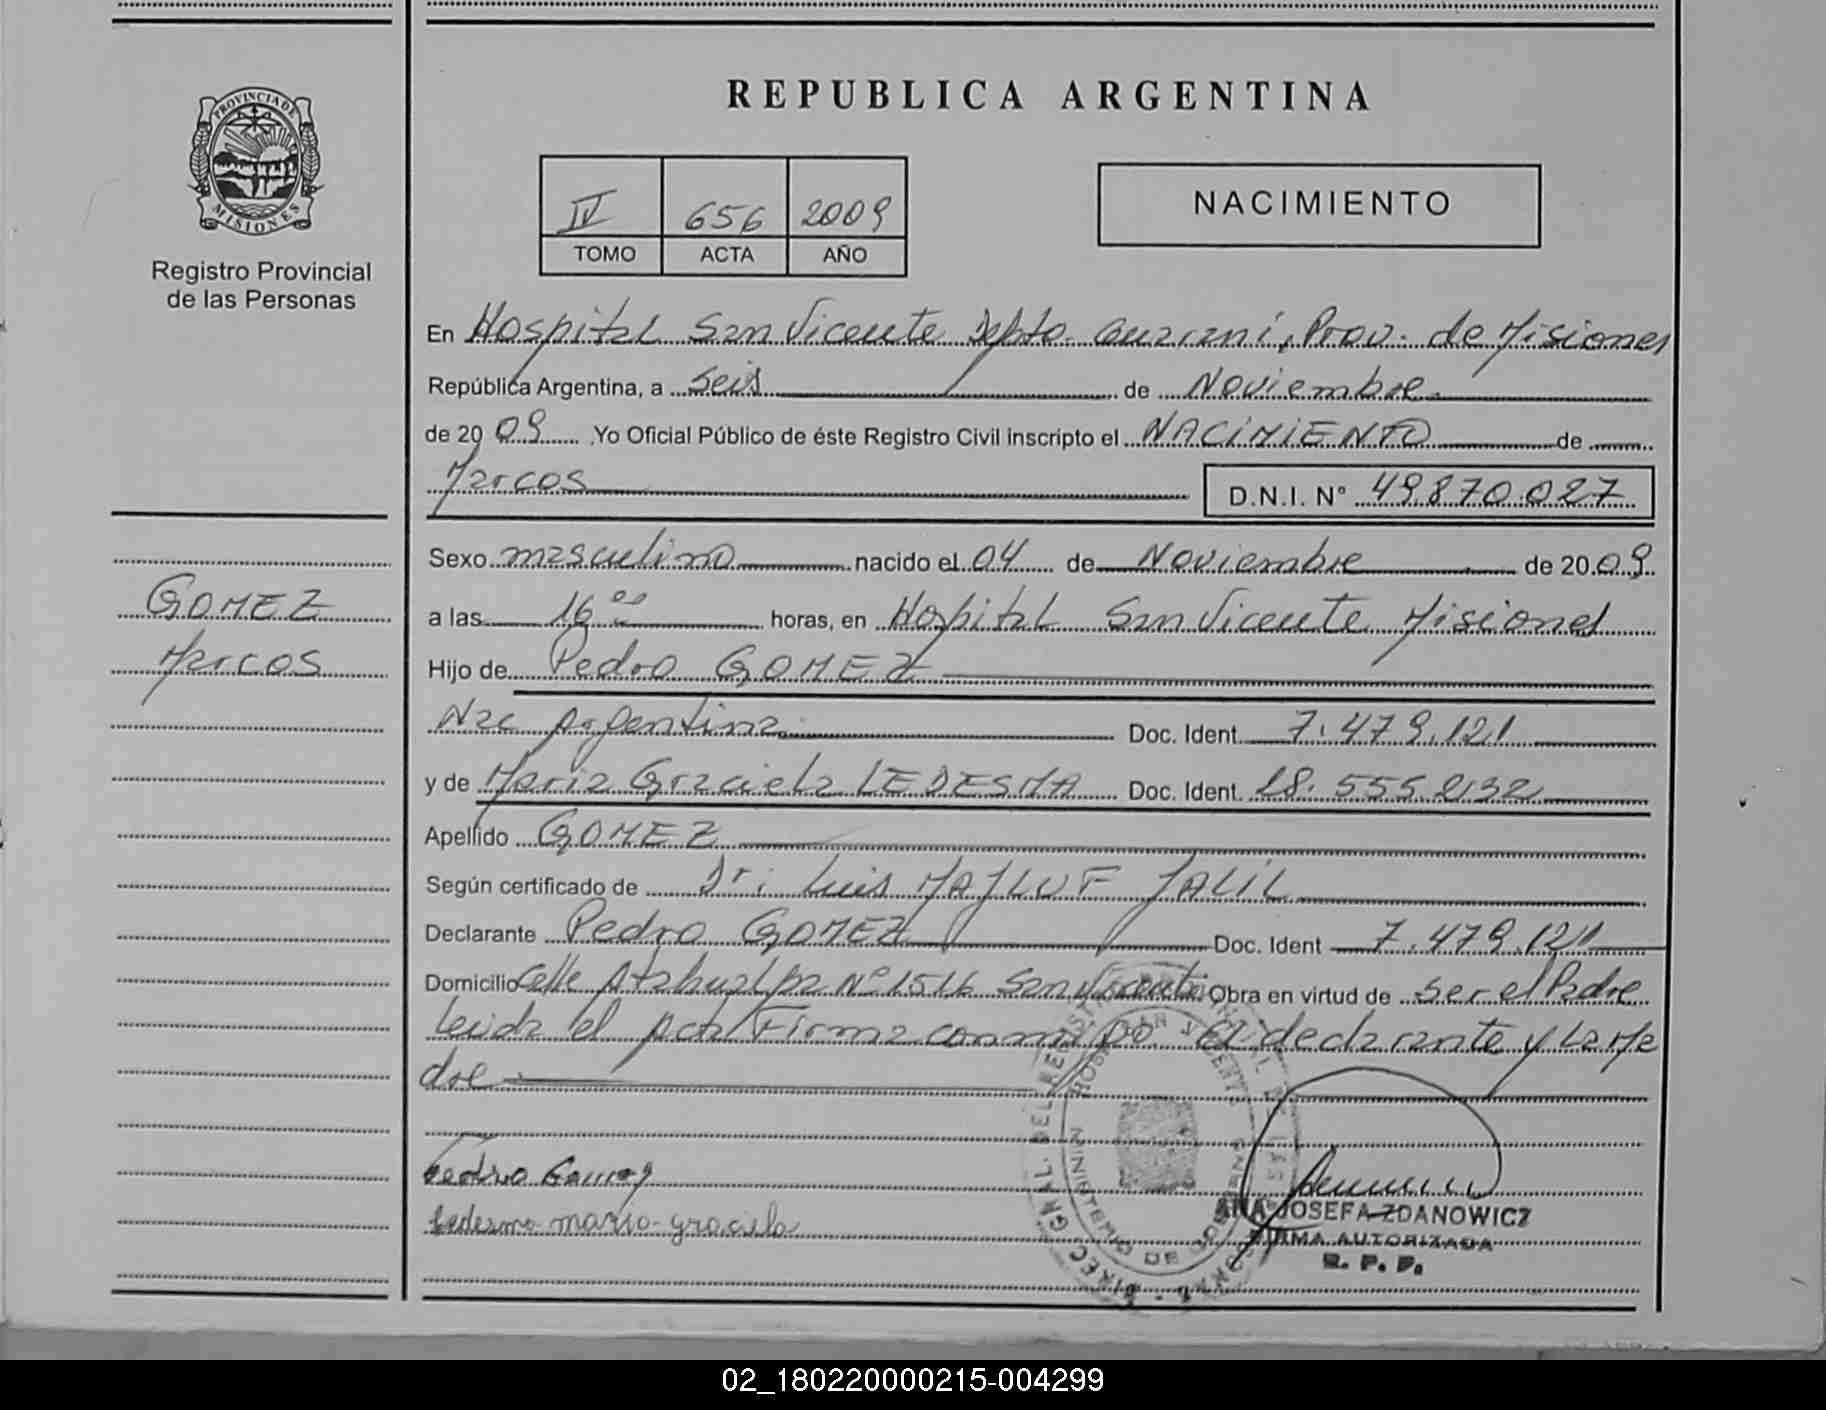 REPUBLICA ARGENTINA
PROVINCIA DE
MISIONES
Registro Provincial
de las Personas
IV 656 2009
TOMO ACTA AÑO
NACIMIENTO
En Hospital San Vicente Depto. Guarani, Prov. de Misiones
República Argentina, a seis de Noviembre
de 2009 .Yo Oficial Público de éste Registro Civil inscripto el NACIMIENTO de
Marcos D.N.I. N° 49.870.027
Sexo masculino nacido el 04 de Noviembre de 2009
GOMEZ
Marcos
a las 16 00 horas, en Hospital San Vicente Misiones
Hijo de Pedro GOMEZ
Nac Argentina Doc. Ident. 7.479.121
y de Maria Graciela LEDESMA Doc. Ident. 28.555.232
Apellido GOMEZ
Según certificado de Dr: Luis MAJLUF JALIL
Declarante Pedro GOMEZ Doc. Ident 7.479.121
Domicilio Calle Atahualpa N° 1516 San Vicente Obra en virtud de ser el Padre
Leida el acta Firma conmigo el declarante y la Ma
dre
Pedro Gomez
Ledesma maria graciela
ANA JOSEFA ZDANOWICZ
FIRMA AUTORIZADA
R. P. P.
02_180220000215-004299